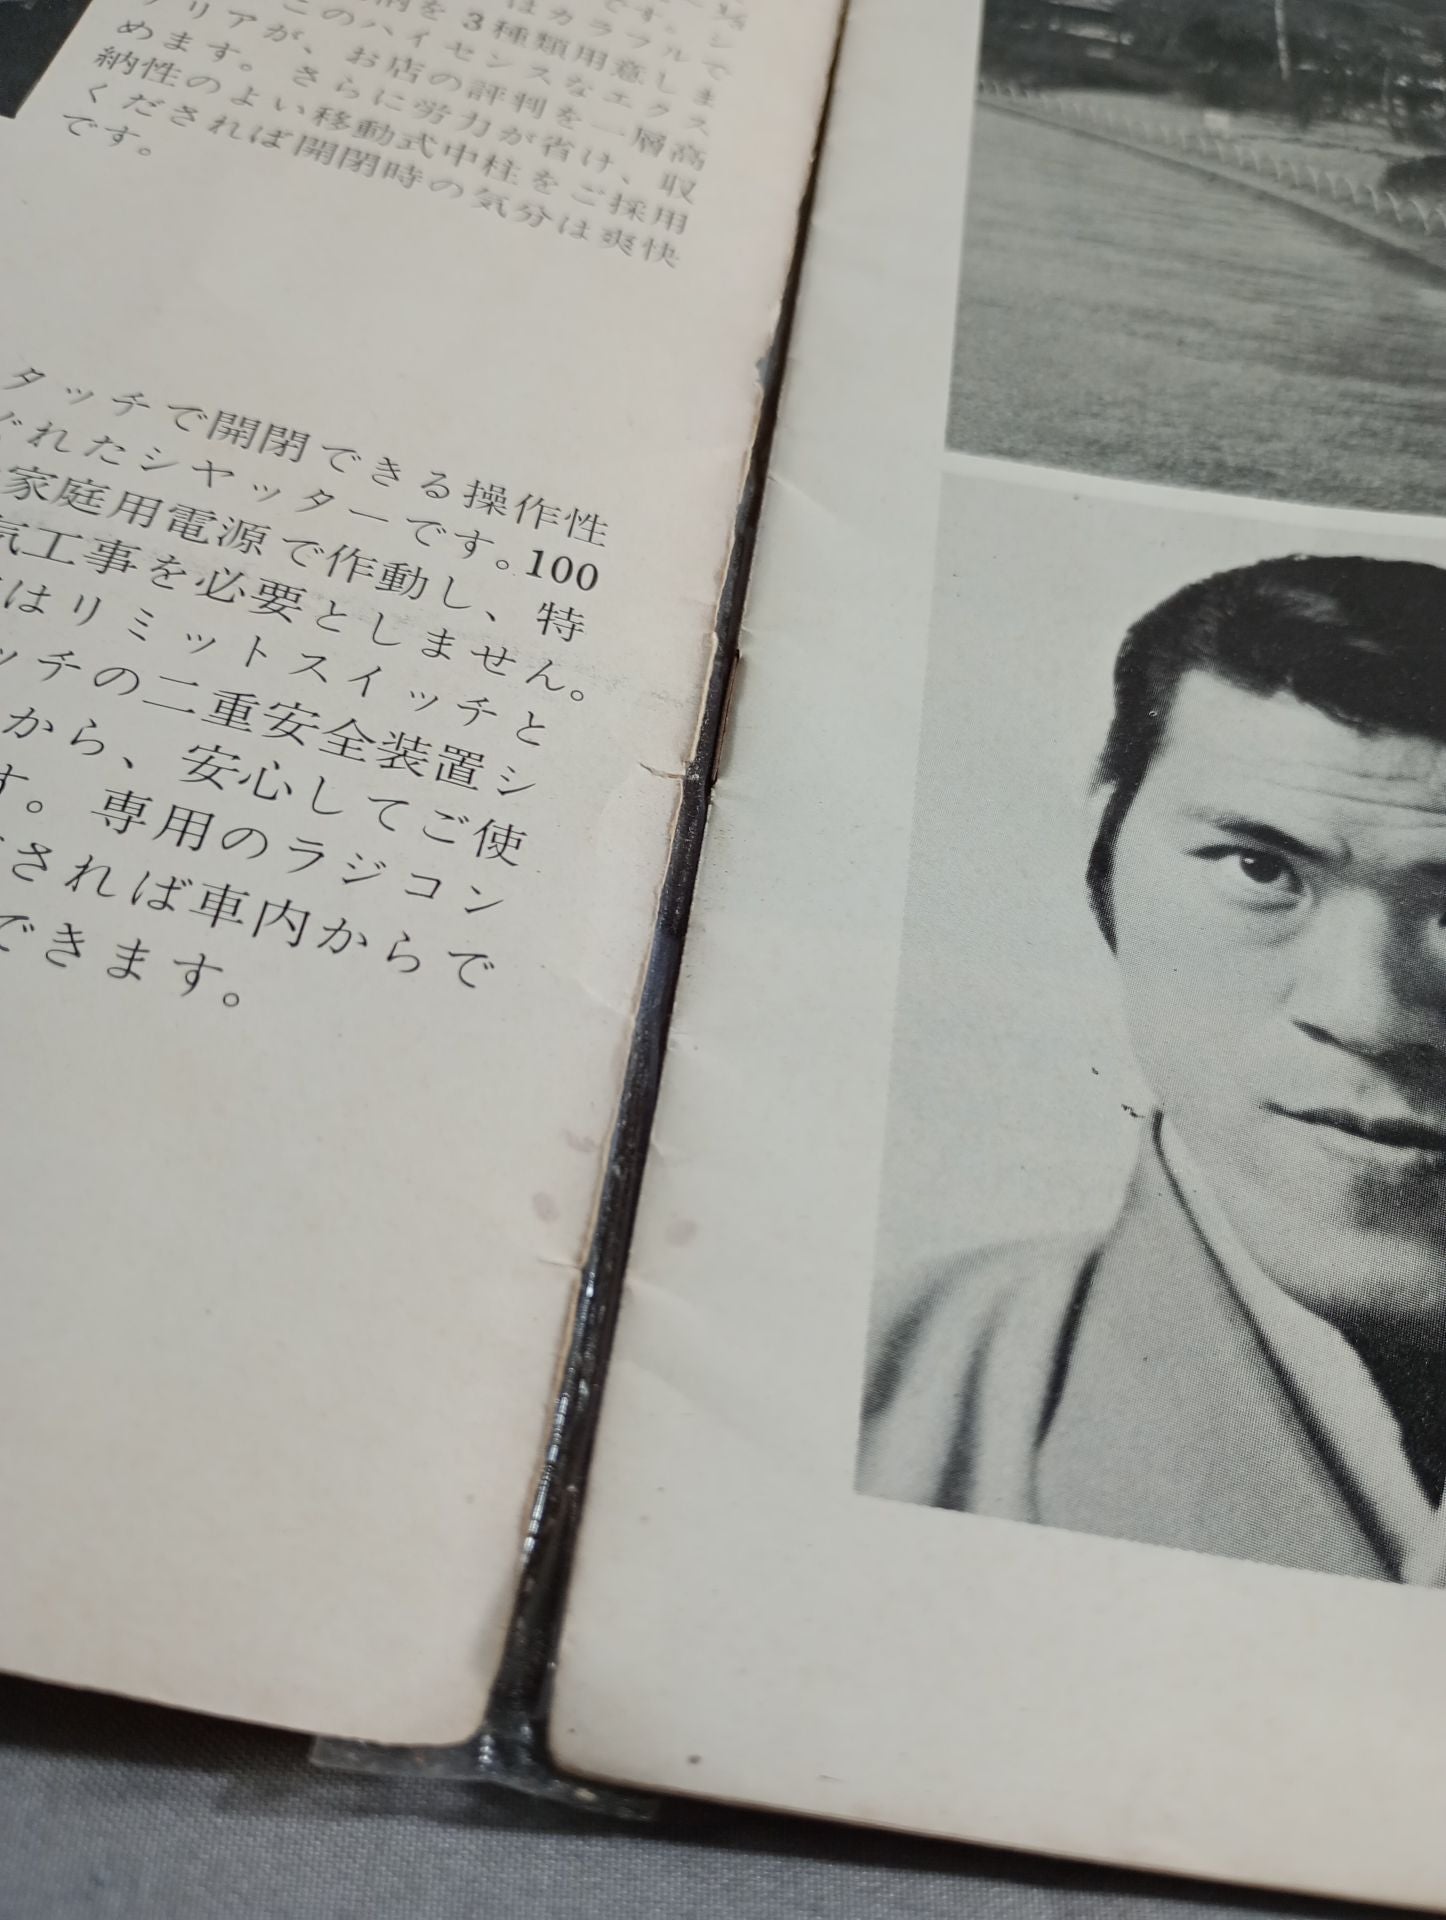 はカラフルで
柄を3種類用意しま
このハイセンスなエクス
テリアが、お店の評判を一層高
めます。さらに労力が省け、収
納性のよい移動式中柱をご採用
くだされば開閉時の気分は爽快
です。
タッチで開閉できる操作性
ぐれたシヤッターです。100
家庭用電源で作動し、特
気工事を必要としません。
はリミットスイッチと
ッチの二重安全装置シ
から、安心してご使
す。専用のラジコン
されば車内からで
できます。